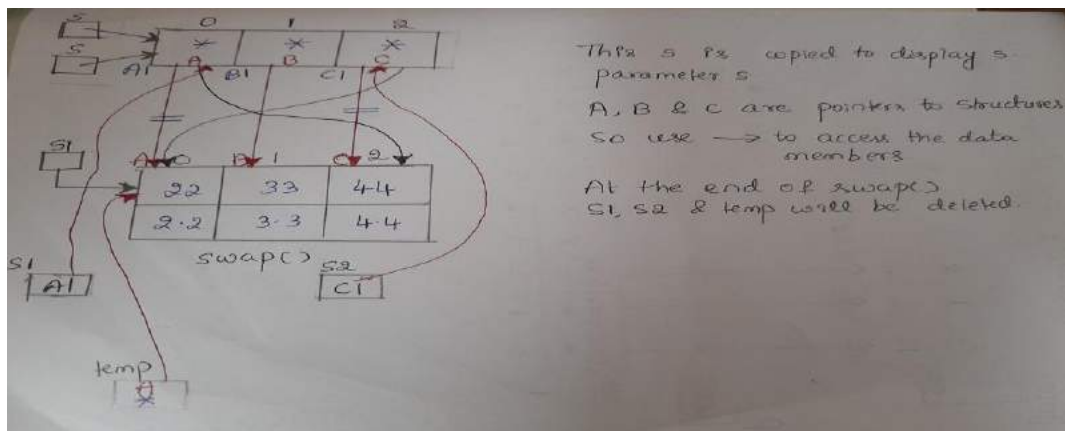 S
S
0 1 2
* * *
A1 A B1 B C1 C
S1
A 0 B 1 C 2
22 33 44
2.2 3.3 4.4
swap()
S1
A1
S2
C1
temp
A
*
This s is copied to display s
parameter s
A, B & C are pointers to structures
So use → to access the data
members
At the end of swap()
S1, S2 & temp will be deleted.